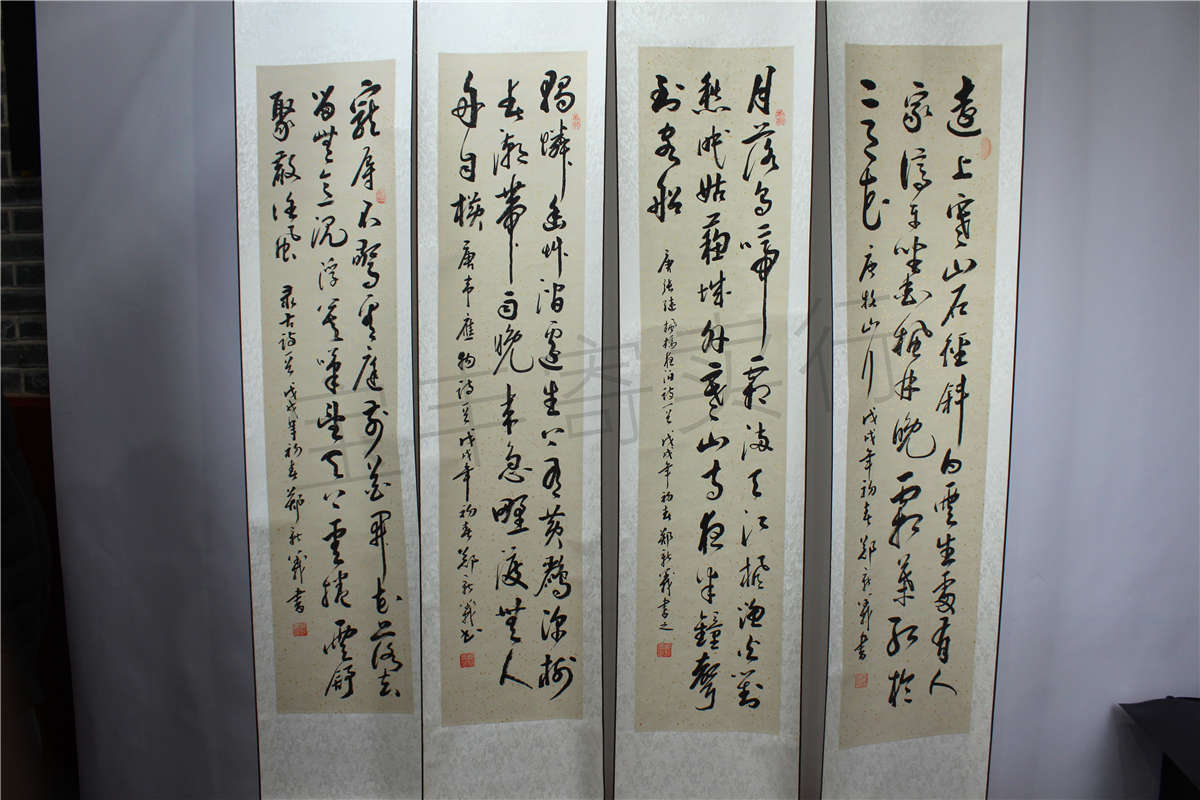 遠上寒山石徑斜白雲生處有人
家停車坐愛楓林晚霜葉紅於
二月花 唐牧山行 戊戌年初春 鄭新義書
月落烏啼霜滿天江楓漁火對
愁眠姑蘇城外寒山寺夜半鐘聲
到客船 唐張继楓橋夜泊詩一首 戊戌年初春 鄭新義書之
獨憐幽艸澗邊生上有黃鸝深樹
春潮帶雨晚來急野渡無人
舟自橫 唐韋應物詩一首 戊戌年初春 鄭新義书
寵辱不驚看庭前花開花落去
留無意 浮 望天上雲捲雲舒
聚散隨風 录古詩一首 戊戌年初春 鄭新義書